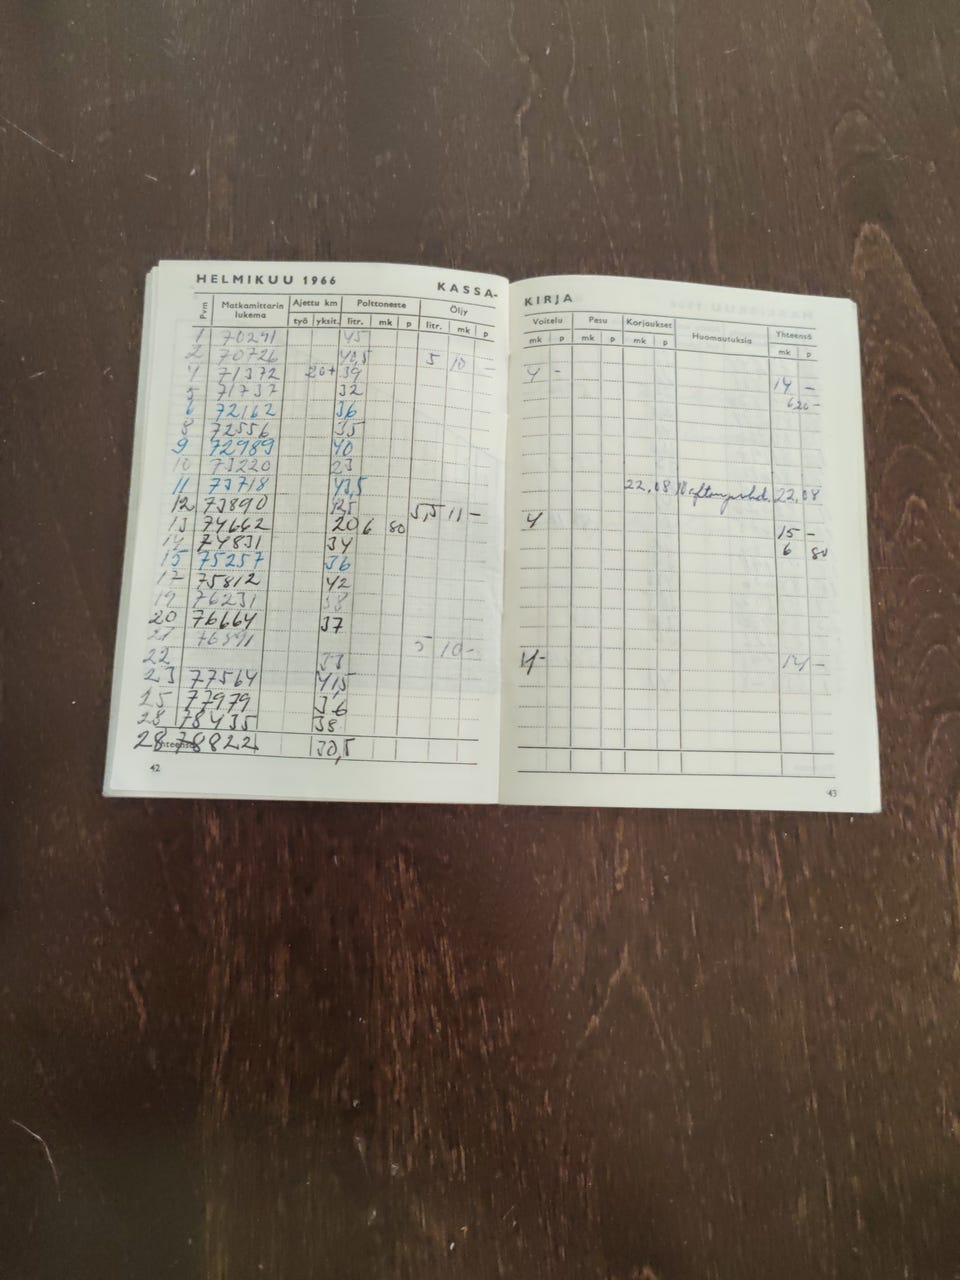 HELMIKUU 1966 KASSA-
KIRJA
Pvm Matkamittarin lukema Ajettu km Polttoneste Öljy
työ yksit. litr. mk p litr. mk p
Voitelu Pesu Korjaukset Huomautuksia Yhteensä
mk p mk p mk p mk p
1 70291 45
2 70726 40,5 5 10 —
4 71372 39 4 - 14 —
5 71737 32
6 72162 36
8 72556 35
9 72989 40
10 73220 23
11 73718 43,5 22,08 22,08
12 73890 5,5 11 —
13 74662 20 6 80 4 15 —
14 74831 34 6 80
15 75257 36
17 75812 42
19 76231 38
20 76664 37
21 5 10 -
22 33 4- 14 —
23 77564 41,5
25 77979 36
28 78435 38
28 78822 30,5
Yhteensä
42
43